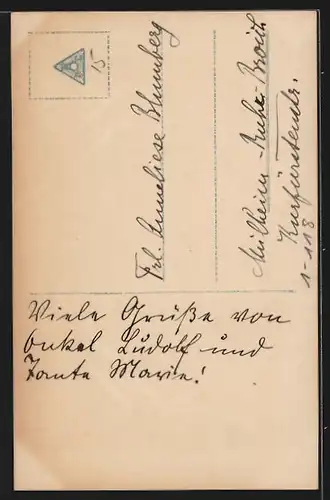 15
Frl. Anneliese Blumberg
Mülheim-Ruhr-Broich
Kurfürstenstr.
1-118
Viele Grüße von
Onkel Ludolf und
Tante Marie!